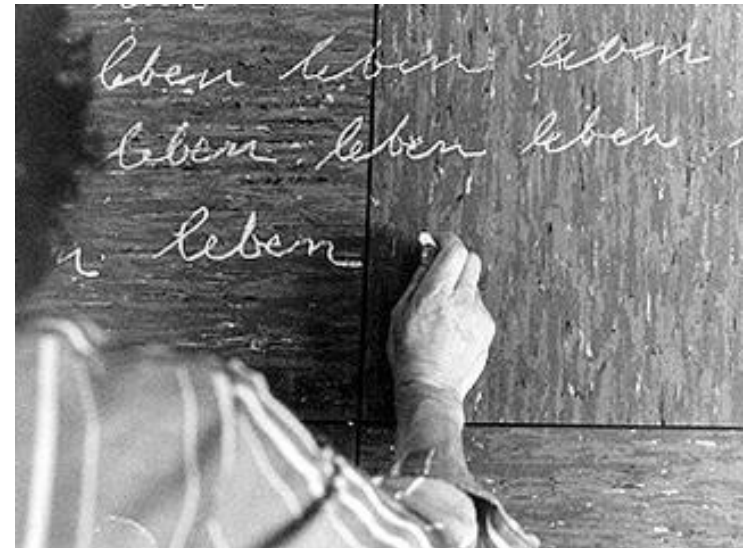 leben leben leben
leben leben leben
n leben